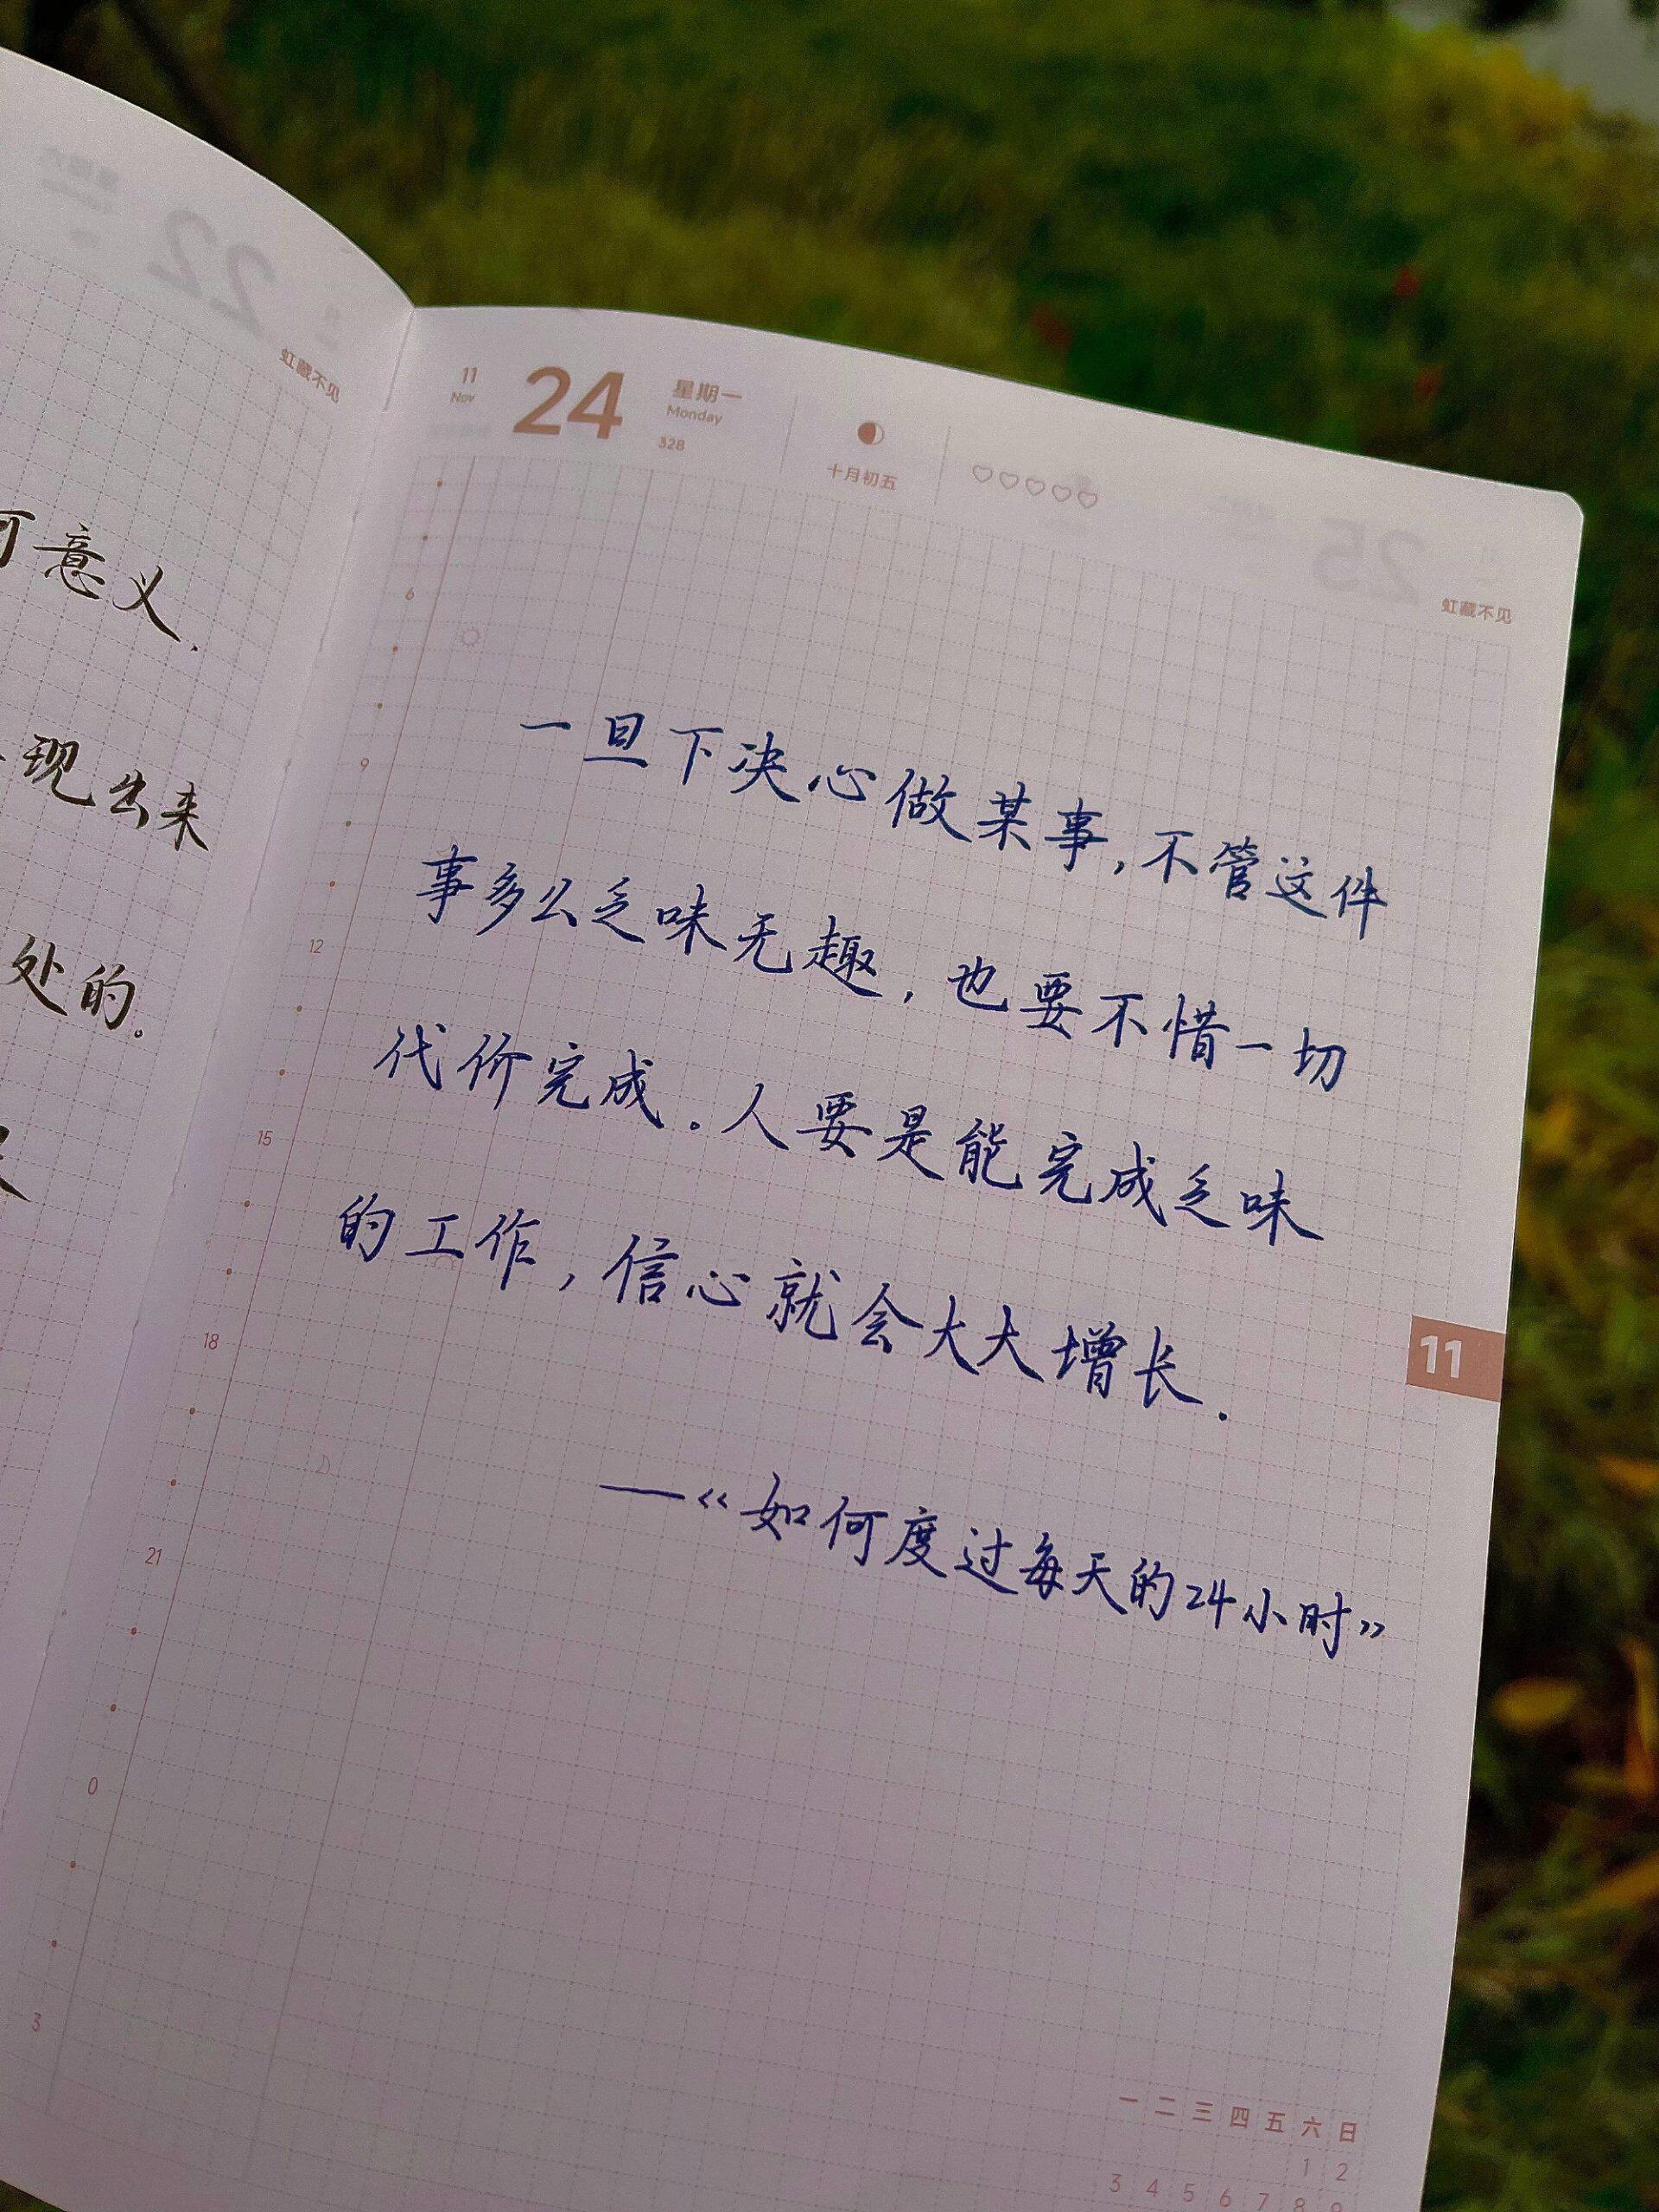 可意义.
现出来
处的。
虹藏不见
11
Nov
24
星期一
Monday
328
十月初五
虹藏不见
6
9
12
15
18
21
0
3
一旦下决心做某事,不管这件
事多么乏味无趣,也要不惜一切
代价完成.人要是能完成乏味
的工作,信心就会大大增长.
—《如何度过每天的24小时》
11
一 二 三 四 五 六 日
1 2
3 4 5 6 7 8 9